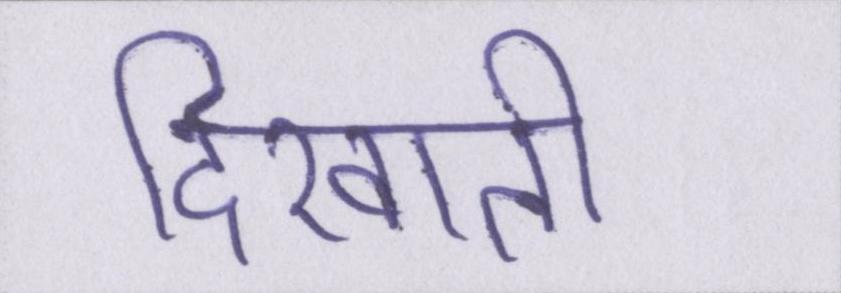 दिखाती